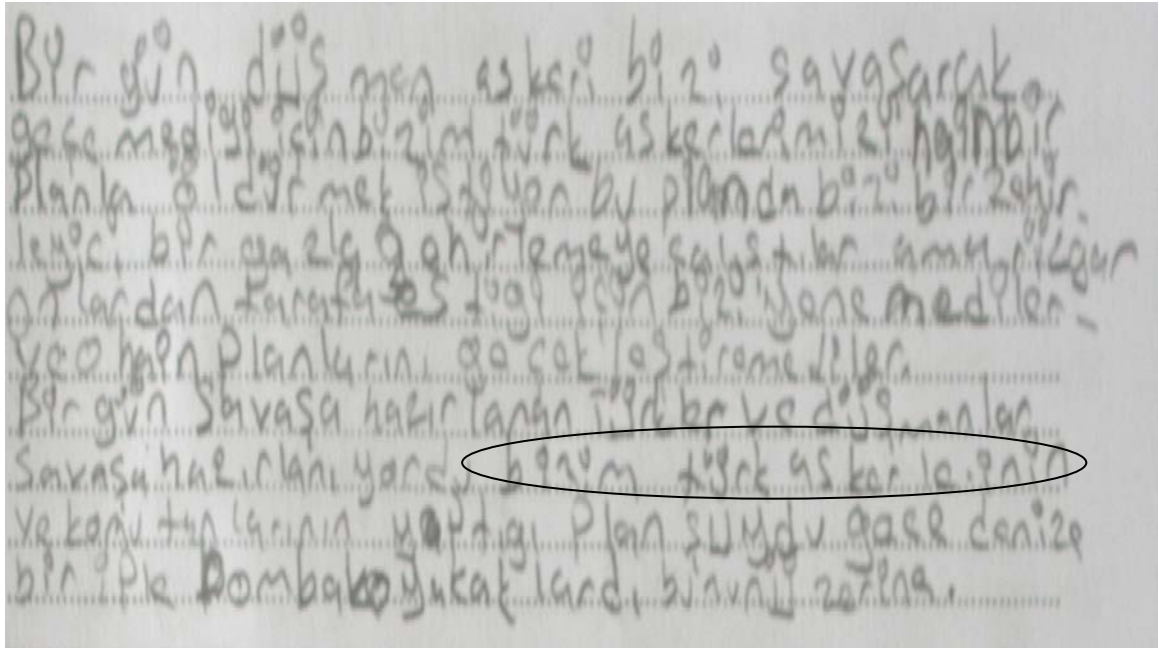 Bir gün düş men as keri bi zi savaşarak
geçe mediği için bizim türk as kerlerimizi hain bir
Planla öl dür mek isdiyor bu planda bizi bir zehir
leyici bir gazla zehirlemeye çalıştılar ama rüzgar
onlardan tarafa estigi için bizi yene mediler
ve o hain Planlarını geçekleştiremediler.
Bir gün Savaşa hazırlanan türkler ve düşmanlar
Savaşa hazırlanıyordu benim türk as kerlerinin
ve komutanlarının yaptıgı Plan şuydu gece denize
bir iple bomba koyucaklardı bunun üzerine.